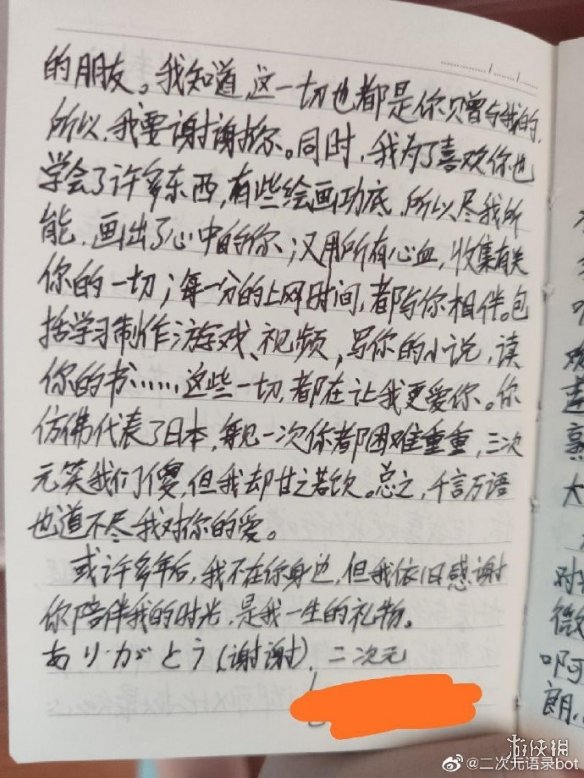 的朋友。我知道,这一切也都是你贝曾与我的,
所以,我要谢谢你。同时,我为了喜欢你也
学会了许多东西,有些绘画功底,所以尽我所
能,画出了心中的你;又用所有心血,收集有关
你的一切;每一分的上网时间,都与你相伴。包
括学习制作游戏、视频,写你的小说,读
你的书……这些一切,都在让我更爱你。你
仿佛代表了日本,每见一次你都困难重重,三次
元笑我们傻,但我却甘之若饮。总之,千言万语
也道不尽我对你的爱。
或许多年后,我不在你身边,但我依旧感谢
你陪伴我的时光,是我一生的礼物。
ありがとう(谢谢),二次元
欢
熟
大
对
微
啊
朗
游侠网
@二次元语录bot